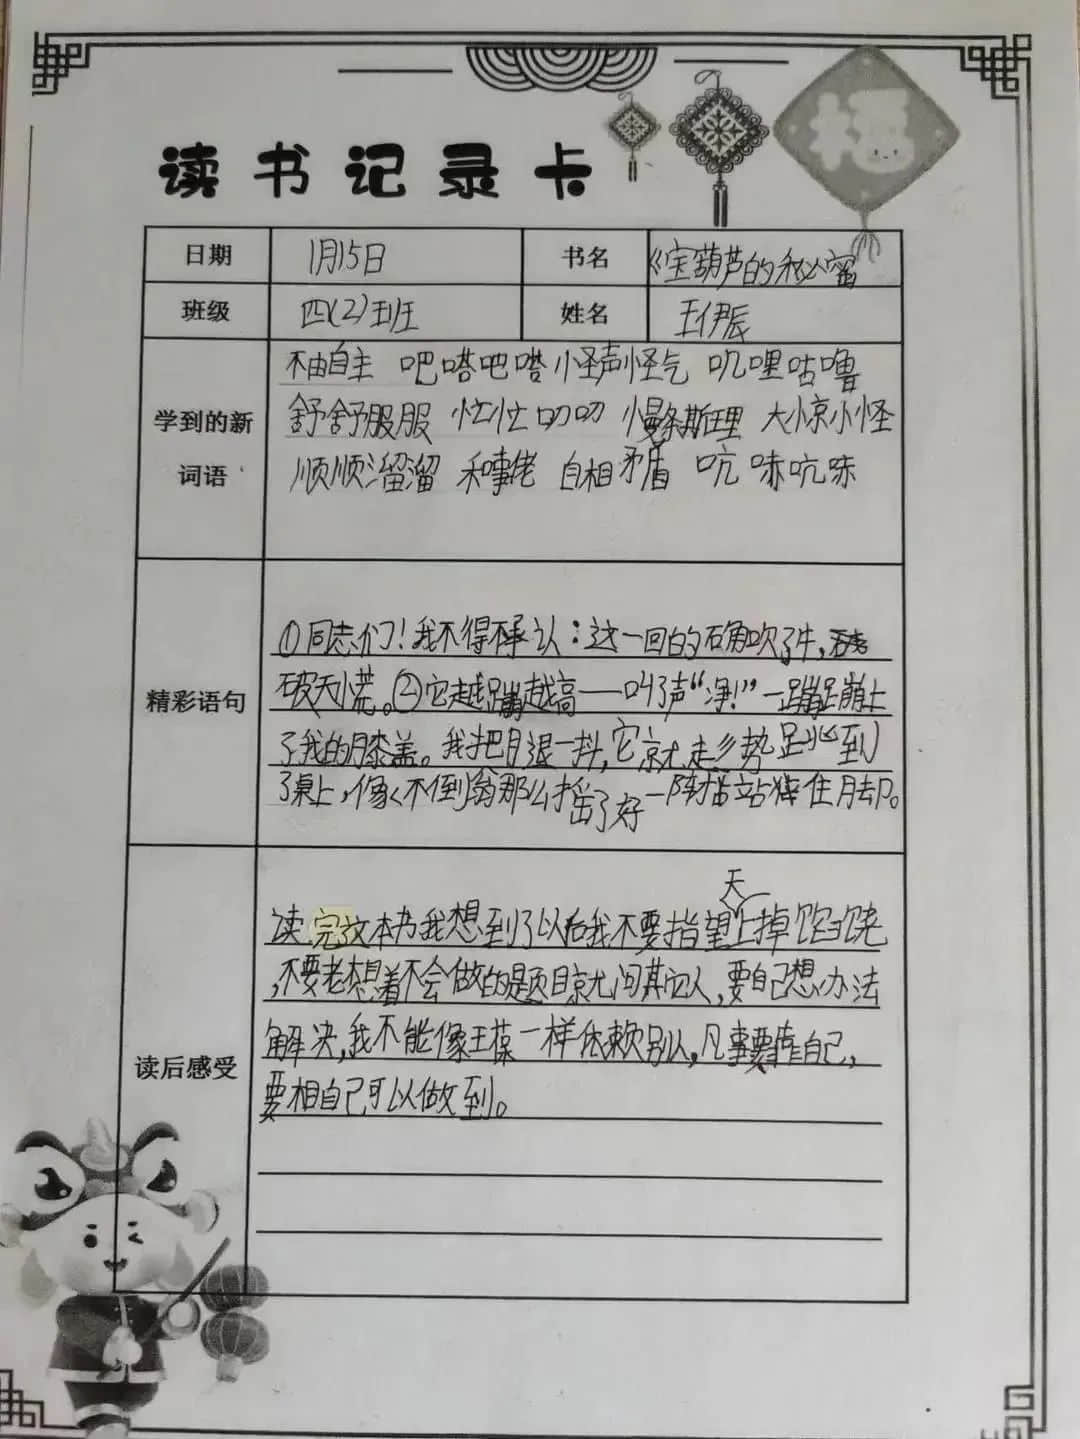 福
读书记录卡
日期 1月15日 书名 《宝葫芦的秘密
班级 四(2)班 姓名 王伊辰
学到的新词语
不由自主 吧嗒吧嗒 怪声怪气 叽哩咕噜
舒舒服服 忙忙叨叨 慢条斯理 大惊小怪
顺顺溜溜 和事佬 自相矛盾 吭哧吭哧
精彩语句
①同志们!我不得不承认:这一回的确吹了牛,
破天慌。②它越蹦越高——叫了声“净!”一蹦蹦上
了我的膝盖。我把腿一抖,它就趁势跳到
了桌上,像不倒翁那么摇了好一阵才站住脚。
读后感受
读完这本书我想到了以后我不要指望天上掉馅饼
,不要老想着不会做的题目就问其它人,要自己想办法
解决,我不能像王葆一样依赖别人,凡事要靠自己,
要相自己可以做到。